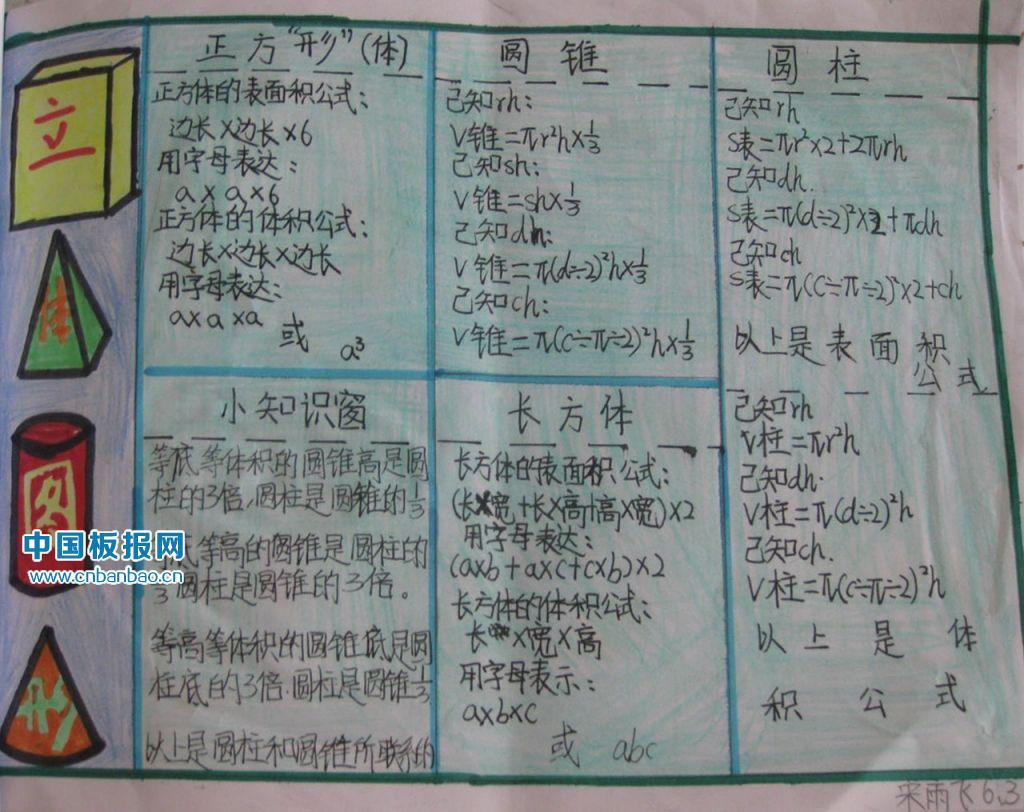 立
体
图
形
正方"形"(体)
正方体的表面积公式:
边长×边长×6
用字母表达:
a×a×6
正方体的体积公式:
边长×边长×边长
用字母表达:
a×a×a
或 a³
圆锥
已知rh:
V锥=πr²h×1/3
已知sh:
V锥=sh×1/3
已知dh:
V锥=π(d÷2)²h×1/3
已知ch:
V锥=π(c÷π÷2)²h×1/3
圆柱
已知rh
S表=πr²×2+2πrh
已知dh.
S表=π(d÷2)²×2+πdh
已知ch
S表=π(C÷π÷2)²×2+ch
以上是表面积
公式
已知rh
V柱=πr²h
已知dh.
V柱=π(d÷2)²h
已知ch.
V柱=π(c÷π÷2)²h
以上是体
积公式
小知识窗
等底等体积的圆锥高是圆
柱的3倍.圆柱是圆锥的1/3
底等高的圆锥是圆柱的
1/3圆柱是圆锥的3倍。
等高等体积的圆锥底是圆
柱底的3倍.圆柱是圆锥1/3
以上是圆柱和圆锥所联系的
长方体
长方体的表面积公式:
(长×宽+长×高+高×宽)×2
用字母表达:
(a×b+a×c+c×b)×2
长方体的体积公式:
长×宽×高
用字母表示:
a×b×c
或 abc
中国板报网
www.cnbanbao.cn
雨飞6.3